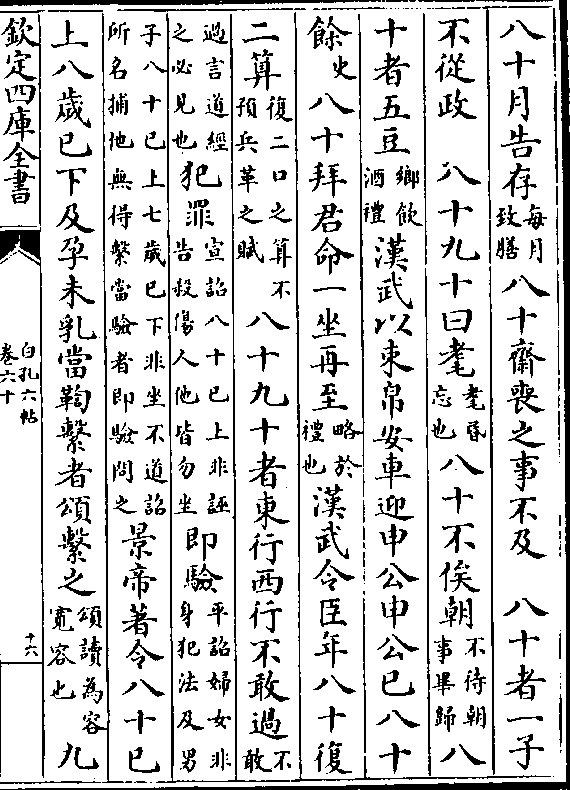 八十月告存每月致膳八十齋喪之事不及　八十者一子
不從政　八十九十曰耄耄昏忘也八十不俟朝不待朝事畢歸八
十者五豆鄉飲酒禮漢武以束帛安車迎申公申公已八十
餘史八十拜君命一坐再至略於禮也漢武令臣年八十復
二算復二口之算不預兵革之賦八十九十者東行西行不敢過不敢
過言道經之必見也犯罪宣詔八十已上非誣告殺傷人他皆勿坐即驗平詔婦女非身犯法及男
子八十已上七歲已下非坐不道詔所名捕他無得繫當驗者即驗問之景帝著令八十已
上八歲已下及孕未乳當鞫繫者頌繫之頌讀為容寛容也九
欽定四庫全書
白孔六帖
卷六十
十六